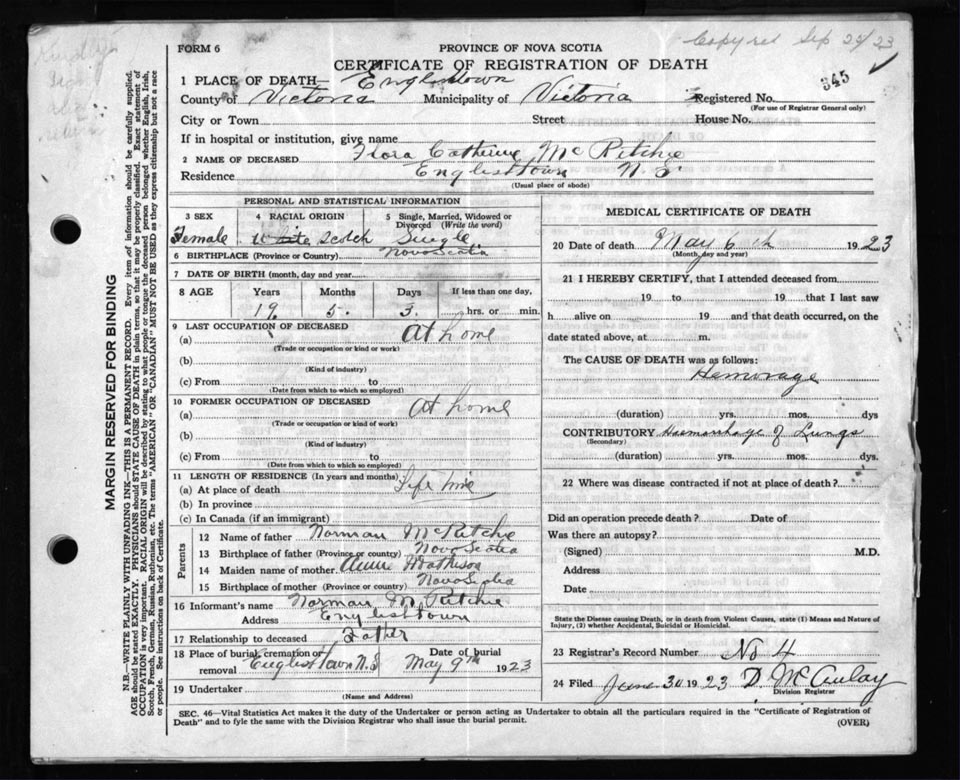 FORM 6
PROVINCE OF NOVA SCOTIA
Copyred Sep 25/23
CERTIFICATE OF REGISTRATION OF DEATH
345
1 PLACE OF DEATH— Englishtown
County of Victoria Municipality of Victoria Registered No.
(For use of Registrar General only)
City or Town Street House No.
If in hospital or institution, give name
2 NAME OF DECEASED Flora Catherine McRitchie
Residence Englishtown N.S.
(Usual place of abode)
PERSONAL AND STATISTICAL INFORMATION
3 SEX 4 RACIAL ORIGIN 5 Single, Married, Widowed or Divorced (Write the word)
Female White Scotch Single
6 BIRTHPLACE (Province or Country) Nova Scotia
7 DATE OF BIRTH (month, day and year)
8 AGE Years Months Days If less than one day,
19 5 3 hrs. or min.
9 LAST OCCUPATION OF DECEASED
(a) At home
(Trade or occupation or kind or work)
(b)
(Kind of industry)
(c) From to
(Date from which to which so employed)
10 FORMER OCCUPATION OF DECEASED
(a) At home
(Trade or occupation or kind of work)
(b)
(Kind of industry)
(c) From to
(Date from which to which so employed)
11 LENGTH OF RESIDENCE (In years and months)
(a) At place of death Life time
(b) In province
(c) In Canada (if an immigrant)
Parents
12 Name of father Norman McRitchie
13 Birthplace of father (Province or country) Nova Scotia
14 Maiden name of mother Annie Mathison
15 Birthplace of mother (Province or country) Nova Scotia
16 Informant's name Norman McRitchie
Address Englishtown
17 Relationship to deceased Father
18 Place of burial, cremation or removal Englishtown N.S Date of burial May 9th 1923
19 Undertaker
(Name and Address)
MEDICAL CERTIFICATE OF DEATH
20 Date of death May 6th 1923
(Month, day and year)
21 I HEREBY CERTIFY, that I attended deceased from
19 to 19 that I last saw
h alive on 19 and that death occurred, on the
date stated above, at m.
The CAUSE OF DEATH was as follows:
Hemorage
(duration) yrs. mos. dys
CONTRIBUTORY Haemorrhage of Lungs
(Secondary)
(duration) yrs. mos. dys.
22 Where was disease contracted if not at place of death?
Did an operation precede death? Date of
Was there an autopsy?
(Signed) M.D.
Address
Date
State the Disease causing Death, or in death from Violent Causes, state (1) Means and Nature of
Injury, (2) whether Accidental, Suicidal or Homicidal.
23 Registrar's Record Number No 4
24 Filed June 30 1923 D. McAulay
Division Registrar
SEC. 46—Vital Statistics Act makes it the duty of the Undertaker or person acting as Undertaker to obtain all the particulars required in the "Certificate of Registration of
Death" and to fyle the same with the Division Registrar who shall issue the burial permit. (OVER)
MARGIN RESERVED FOR BINDING
N.B.—WRITE PLAINLY WITH UNFADING INK—THIS IS A PERMANENT RECORD. Every item of information should be carefully supplied.
AGE should be stated EXACTLY. PHYSICIANS should STATE CAUSE OF DEATH in plain terms, so that it may be properly classified. Exact statement of
OCCUPATION is very important. RACIAL ORIGIN will be described by stating to what people or tongue the deceased person belonged whether English, Irish,
Scotch, French, German, Russian, Ruthenian, etc. The terms "AMERICAN" OR "CANADIAN" MUST NOT BE USED as they express citizenship but not a race
or people. See instructions on back of Certificate.